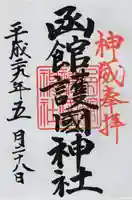 神威奉拝
函館護國神社
平成二九年五月二八日